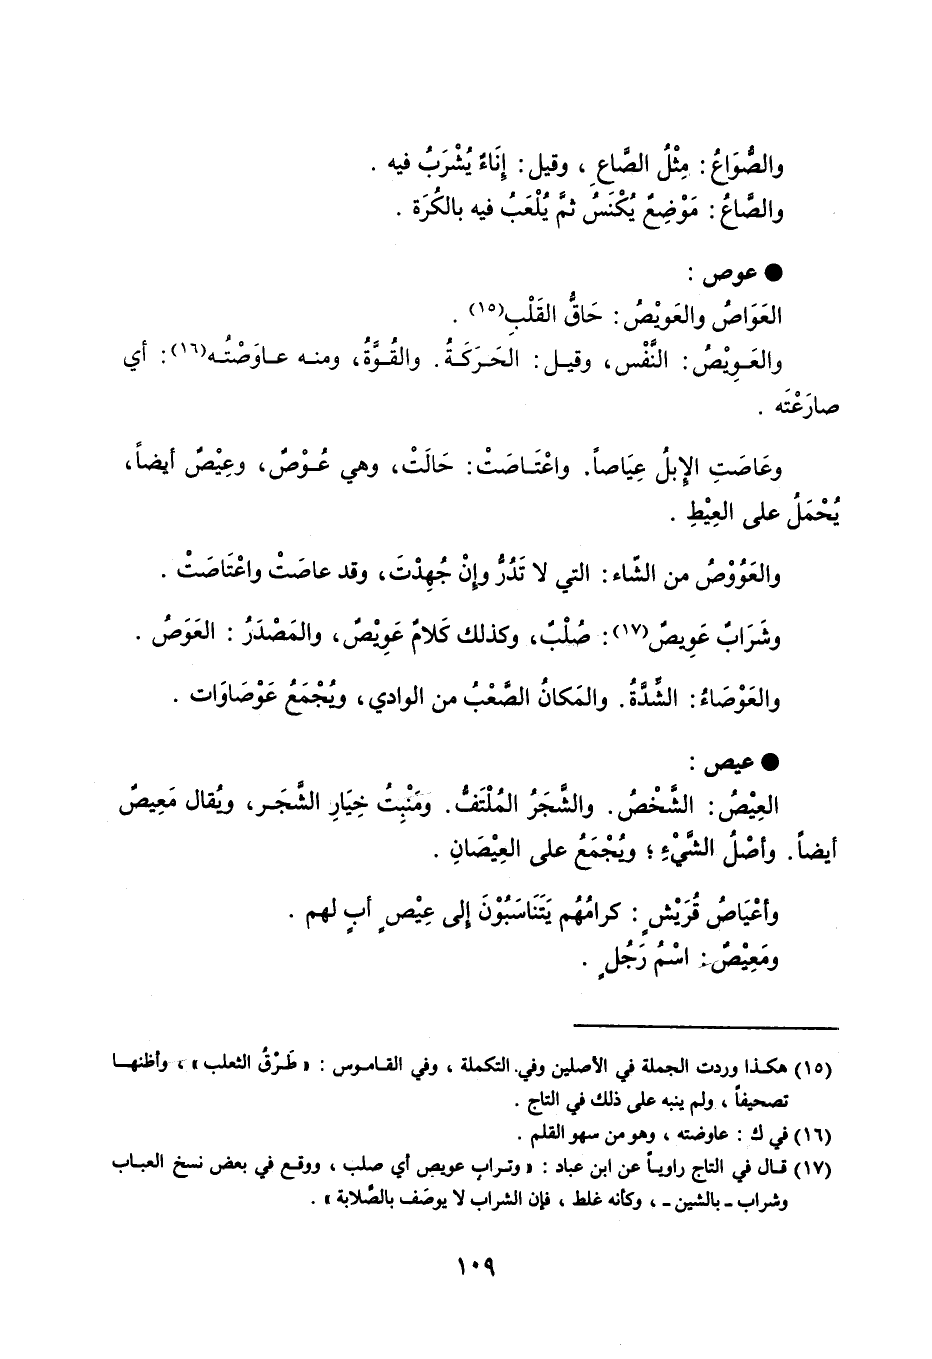 والصُّوَاعُ: مِثْلُ الصَّاعِ، وقيل: إِنَاءٌ يُشْرَبُ فيه.
والصَّاعُ: مَوْضِعٌ يُكْنَسُ ثمَّ يُلْعَبُ فيه بالكُرَة.
● عوص:
العَوَاصُ والعَوِيْصُ: حَاقُّ القَلْبِ(١٥).
والعَـوِيْصُ: النَّفْس، وقيـل: الحَرَكَـةُ. والقُـوَّةُ، ومنـه عـاوَصْتُـه(١٦): أي
صارَعْتَه.
وعَاصَتِ الإبلُ عِيَاصاً. واعْتَـاصَتْ: حَالَتْ، وهي عُـوْصٌ، وعِيْصٌ أيضاً،
يُحْمَلُ على العِيْطِ.
والعَوُوْصُ من الشّاء: التي لا تَدُرُّ وإنْ جُهِدْتَ، وقد عاصَتْ واعْتَاصَتْ.
وشَرَابٌ عَوِيصٌ(١٧): صُلْبٌ، وكذلك كَلامٌ عَوِيْصٌ، والمَصْدَرُ: العَوَصُ.
والعَوْصَاءُ: الشِّدَّةُ. والمَكانُ الصَّعْبُ من الوادي، ويُجْمَعُ عَوْصَاوَات.
● عيص:
العِيْصُ: الشَّخْصُ. والشَّجَرُ المُلْتَفُّ. ومَنْبِتُ خِيَارِ الشَّجَـر، ويُقال مَعِيصٌ
أيضاً. وأصْلُ الشَّيْءِ؛ ويُجْمَعُ على العِيْصَانِ.
وأعْيَاصُ قُرَيْشٍ: كرامُهُم يَتَنَاسَبُوْنَ إلى عِيْصٍ أبٍ لهم.
ومَعِيْصٌ: اسْمُ رَجُلٍ.
(١٥) هكـذا وردت الجملة في الأصلين وفي التكملة، وفي القامـوس: «طَرْقُ الثعلب»، وأظنهـا
تصحيفاً، ولم ينبه على ذلك في التاج.
(١٦) في ك: عاوضته، وهو من سهو القلم.
(١٧) قـال في التاج راويـاً عن ابن عباد: «وتـراب عويص أي صلب، ووقـع في بعض نسخ العبـاب
وشراب ـ بالشين ـ، وكأنه غلط، فإن الشراب لا يوصَف بالصَّلابة».
١٠٩